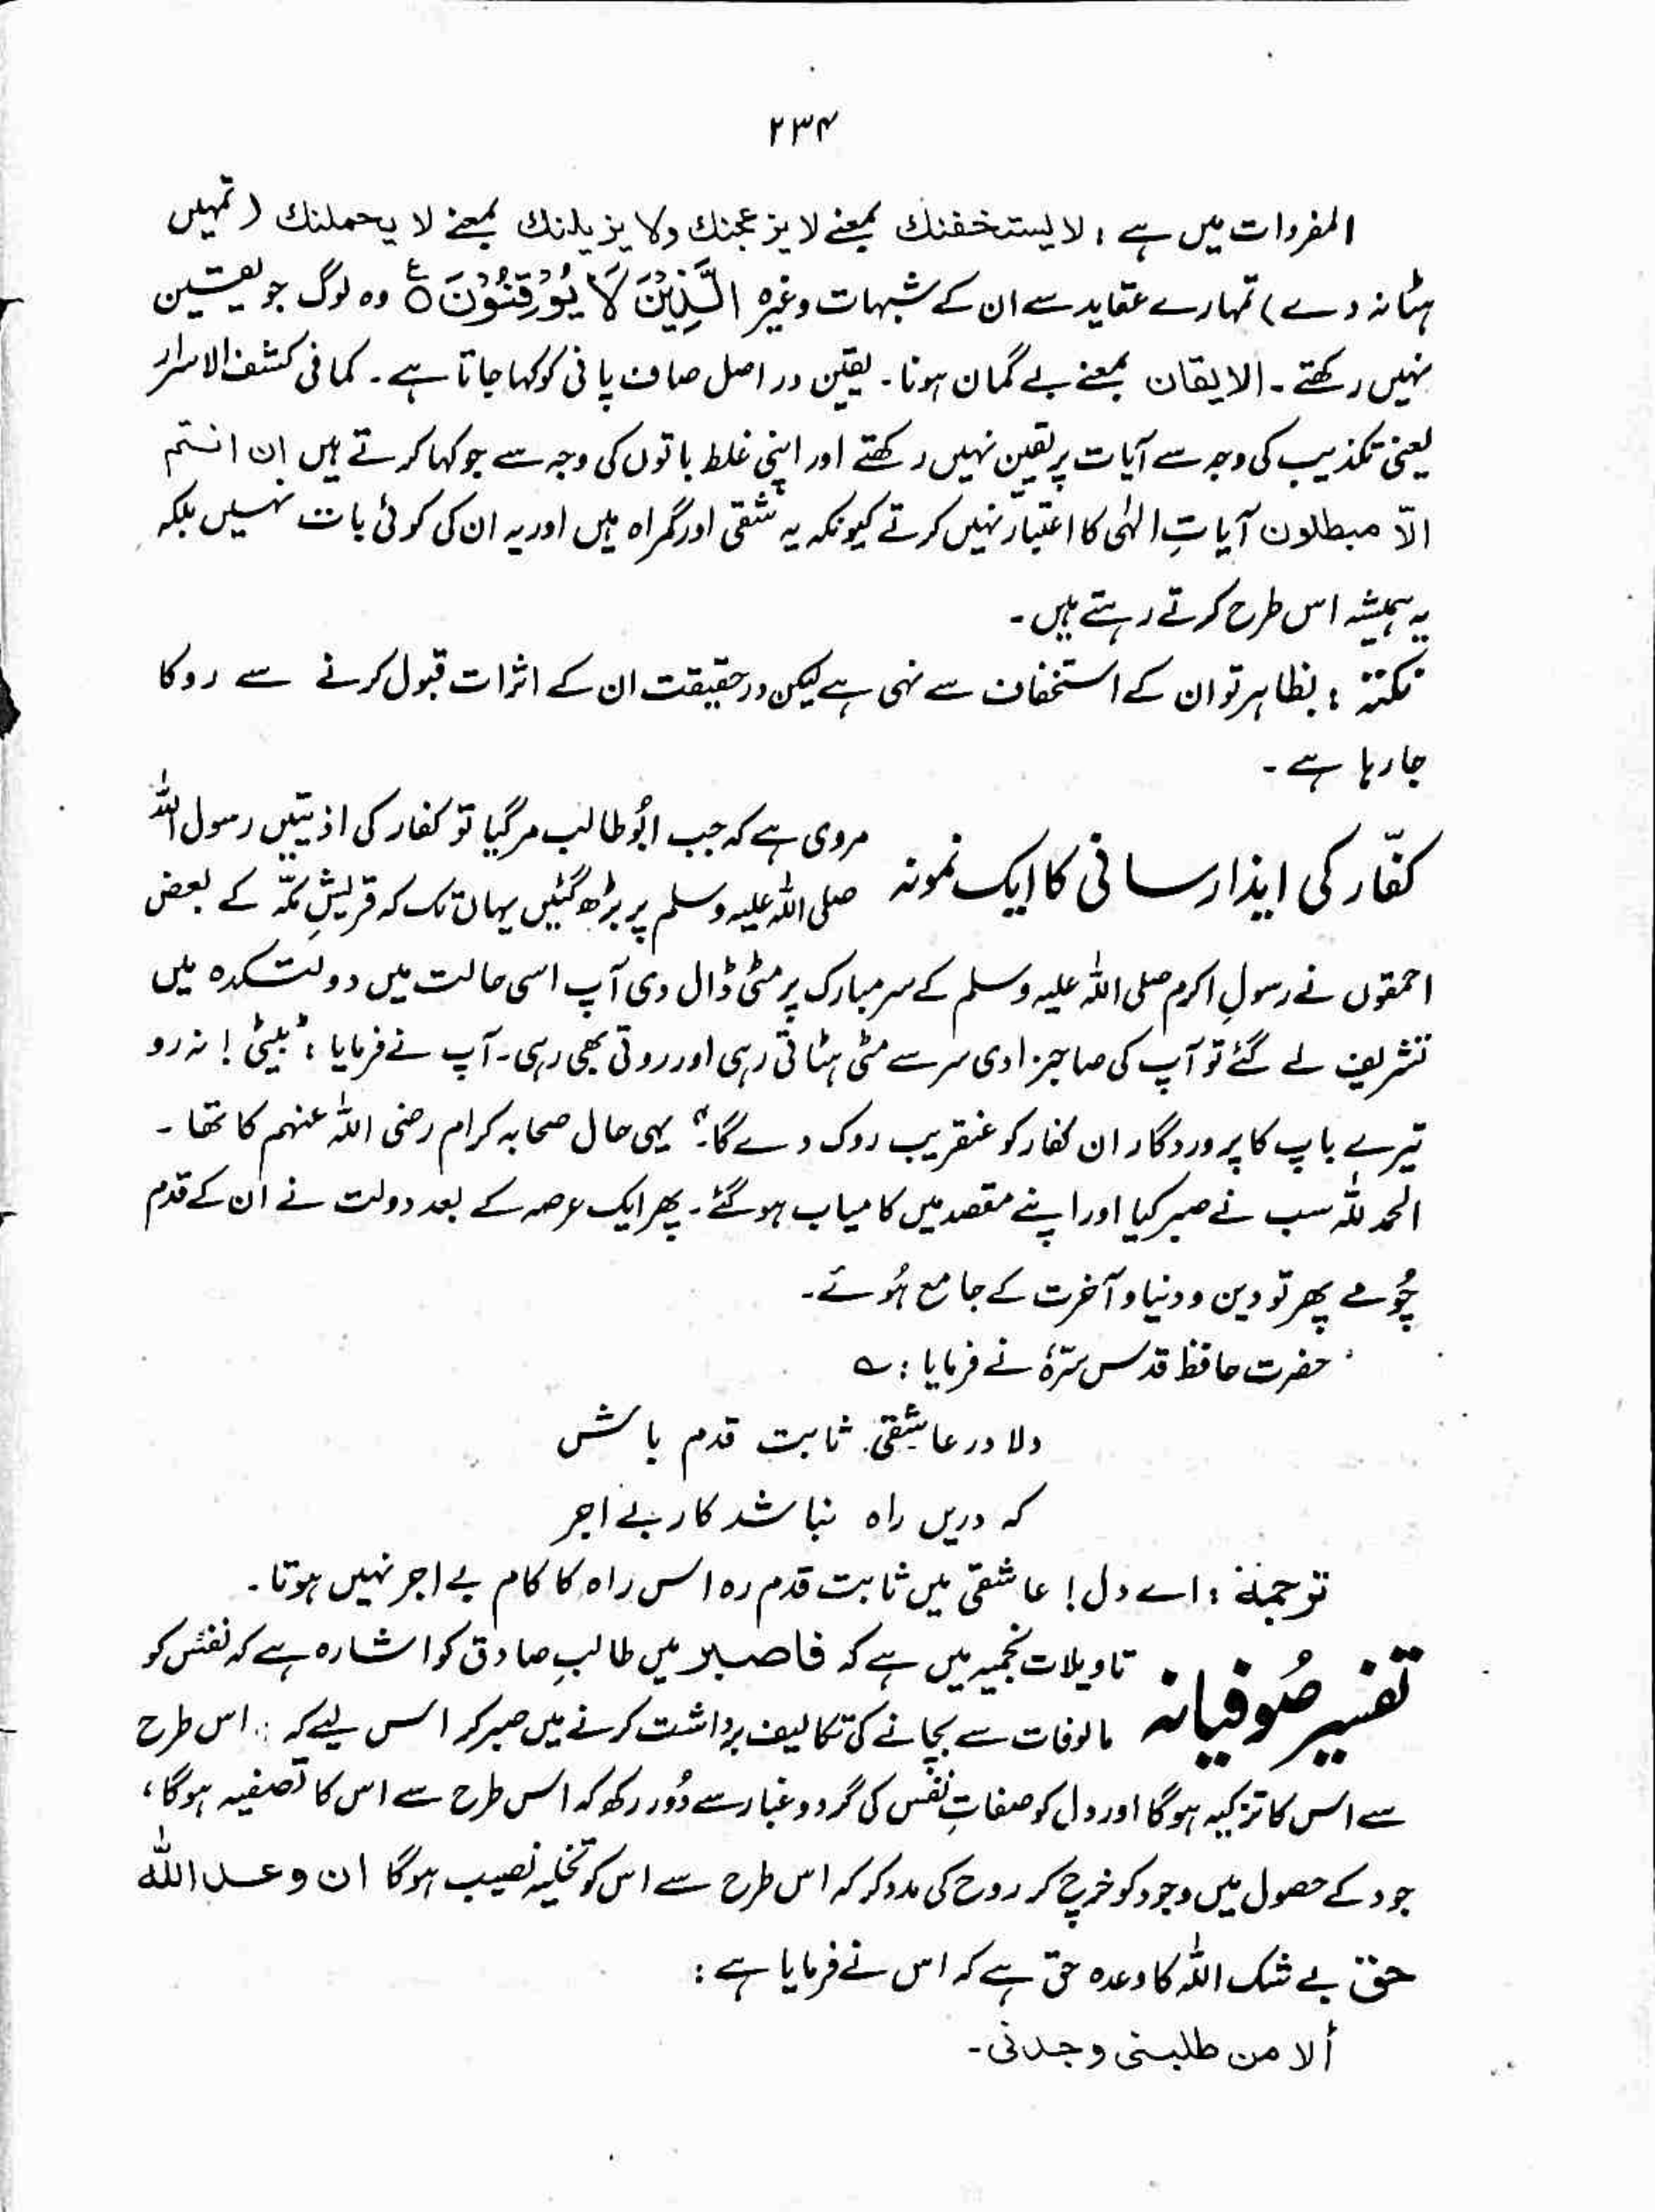 ۲۳۴
المفردات میں ہے : لا یستخفنك بمعنے لا یزعجنك ولا یزیلنك بمعنے لا یحملنك (تمہیں
ہٹا نہ دے) تمہارے عقاید سے ان کے شبہات وغیرہ الَّذِیْنَ لَا یُوْقِنُوْنَ ۝ع وہ لوگ جو یقین
نہیں رکھتے ۔ الایقان بمعنے بے گمان ہونا ۔ یقین در اصل صاف پانی کو کہا جاتا ہے ۔ کما فی کشف الاسرار
یعنی تکذیب کی وجہ سے آیات پر یقین نہیں رکھتے اور اپنی غلط باتوں کی وجہ سے جو کہا کرتے ہیں ان انتم
الّا مبطلون آیاتِ الٰہی کا اعتبار نہیں کرتے کیونکہ یہ شقی اور گمراہ ہیں اور یہ ان کی کوئی بات نہیں بلکہ
یہ ہمیشہ اس طرح کرتے رہتے ہیں ۔
نکتہ : بظاہر تو ان کے استخفاف سے نہی ہے لیکن درحقیقت ان کے اثرات قبول کرنے سے روکا
جا رہا ہے ۔
کفّار کی ایذا رسانی کا ایک نمونہ مروی ہے کہ جب ابُو طالب مر گیا تو کفار کی اذیتیں رسول اللہ
صلی اللہ علیہ وسلم پر بڑھ گئیں یہاں تک کہ قریشِ مکّہ کے بعض
احمقوں نے رسولِ اکرم صلی اللہ علیہ وسلم کے سر مبارک پر مٹی ڈال دی آپ اسی حالت میں دولت کدہ میں
تشریف لے گئے تو آپ کی صاحبزادی سر سے مٹی ہٹاتی رہی اور روتی بھی رہی ۔ آپ نے فرمایا : "بیٹی ! نہ رو
تیرے باپ کا پروردگار ان کفار کو عنقریب روک دے گا ۔" یہی حال صحابہ کرام رضی اللہ عنہم کا تھا ۔
الحمد للہ سب نے صبر کیا اور اپنے مقصد میں کامیاب ہو گئے ۔ پھر ایک عرصہ کے بعد دولت نے ان کے قدم
چُومے پھر تو دین و دنیا و آخرت کے جامع ہُوئے ۔
حضرت حافظ قدس سرّہٗ نے فرمایا : ؎
دلا در عاشقی ثابت قدم باش
کہ دریں راہ نباشد کار بے اجر
ترجمہ : اے دل ! عاشقی میں ثابت قدم رہ اس راہ کا کام بے اجر نہیں ہوتا ۔
تفسیر صُوفیانہ تاویلات نجمیہ میں ہے کہ فاصبر میں طالبِ صادق کو اشارہ ہے کہ نفس کو
مالوفات سے بچانے کی تکالیف برداشت کرنے میں صبر کر اس لیے کہ اس طرح
سے اس کا تزکیہ ہو گا اور دل کو صفاتِ نفس کی گرد و غبار سے دُور رکھ کہ اس طرح سے اس کا تصفیہ ہوگا،
جود کے حصول میں وجود کو خرچ کر روح کی مدد کر کہ اس طرح سے اس کو تخلیہ نصیب ہوگا ان وعد اللّٰہ
حق بے شک اللہ کا وعدہ حق ہے کہ اس نے فرمایا ہے :
ألا من طلبنی وجدنی ۔